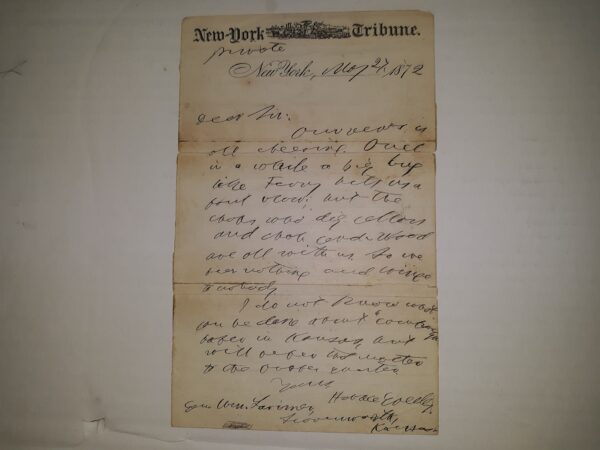 New-York Tribune.
Private
New York, May 27, 1872
Dear Sir:
Our news is
all cheering. Once
in a while a big bug
like Terry hits us a
foul blow; but the
chaps who dig cellars
and chop Cord-Wood
are all with us. So we
fear nothing and
nobody
I do not know what
can be done about a
paper in Kansas, but
will refer the matter
to the proper quarter
Yours
Horace Greeley.
Gen Wm. Larimer,
Leavenworth,
Kansas